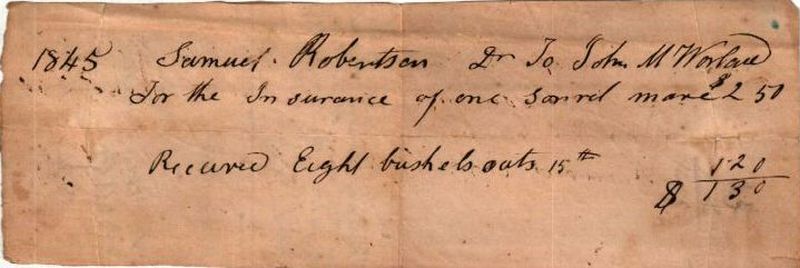 1845 Samuel Robertson Dr To John M Worland
For the Insurance of one Sorril mare $2 50
Received Eight bushels oats 15th 1 20
$ 1 30